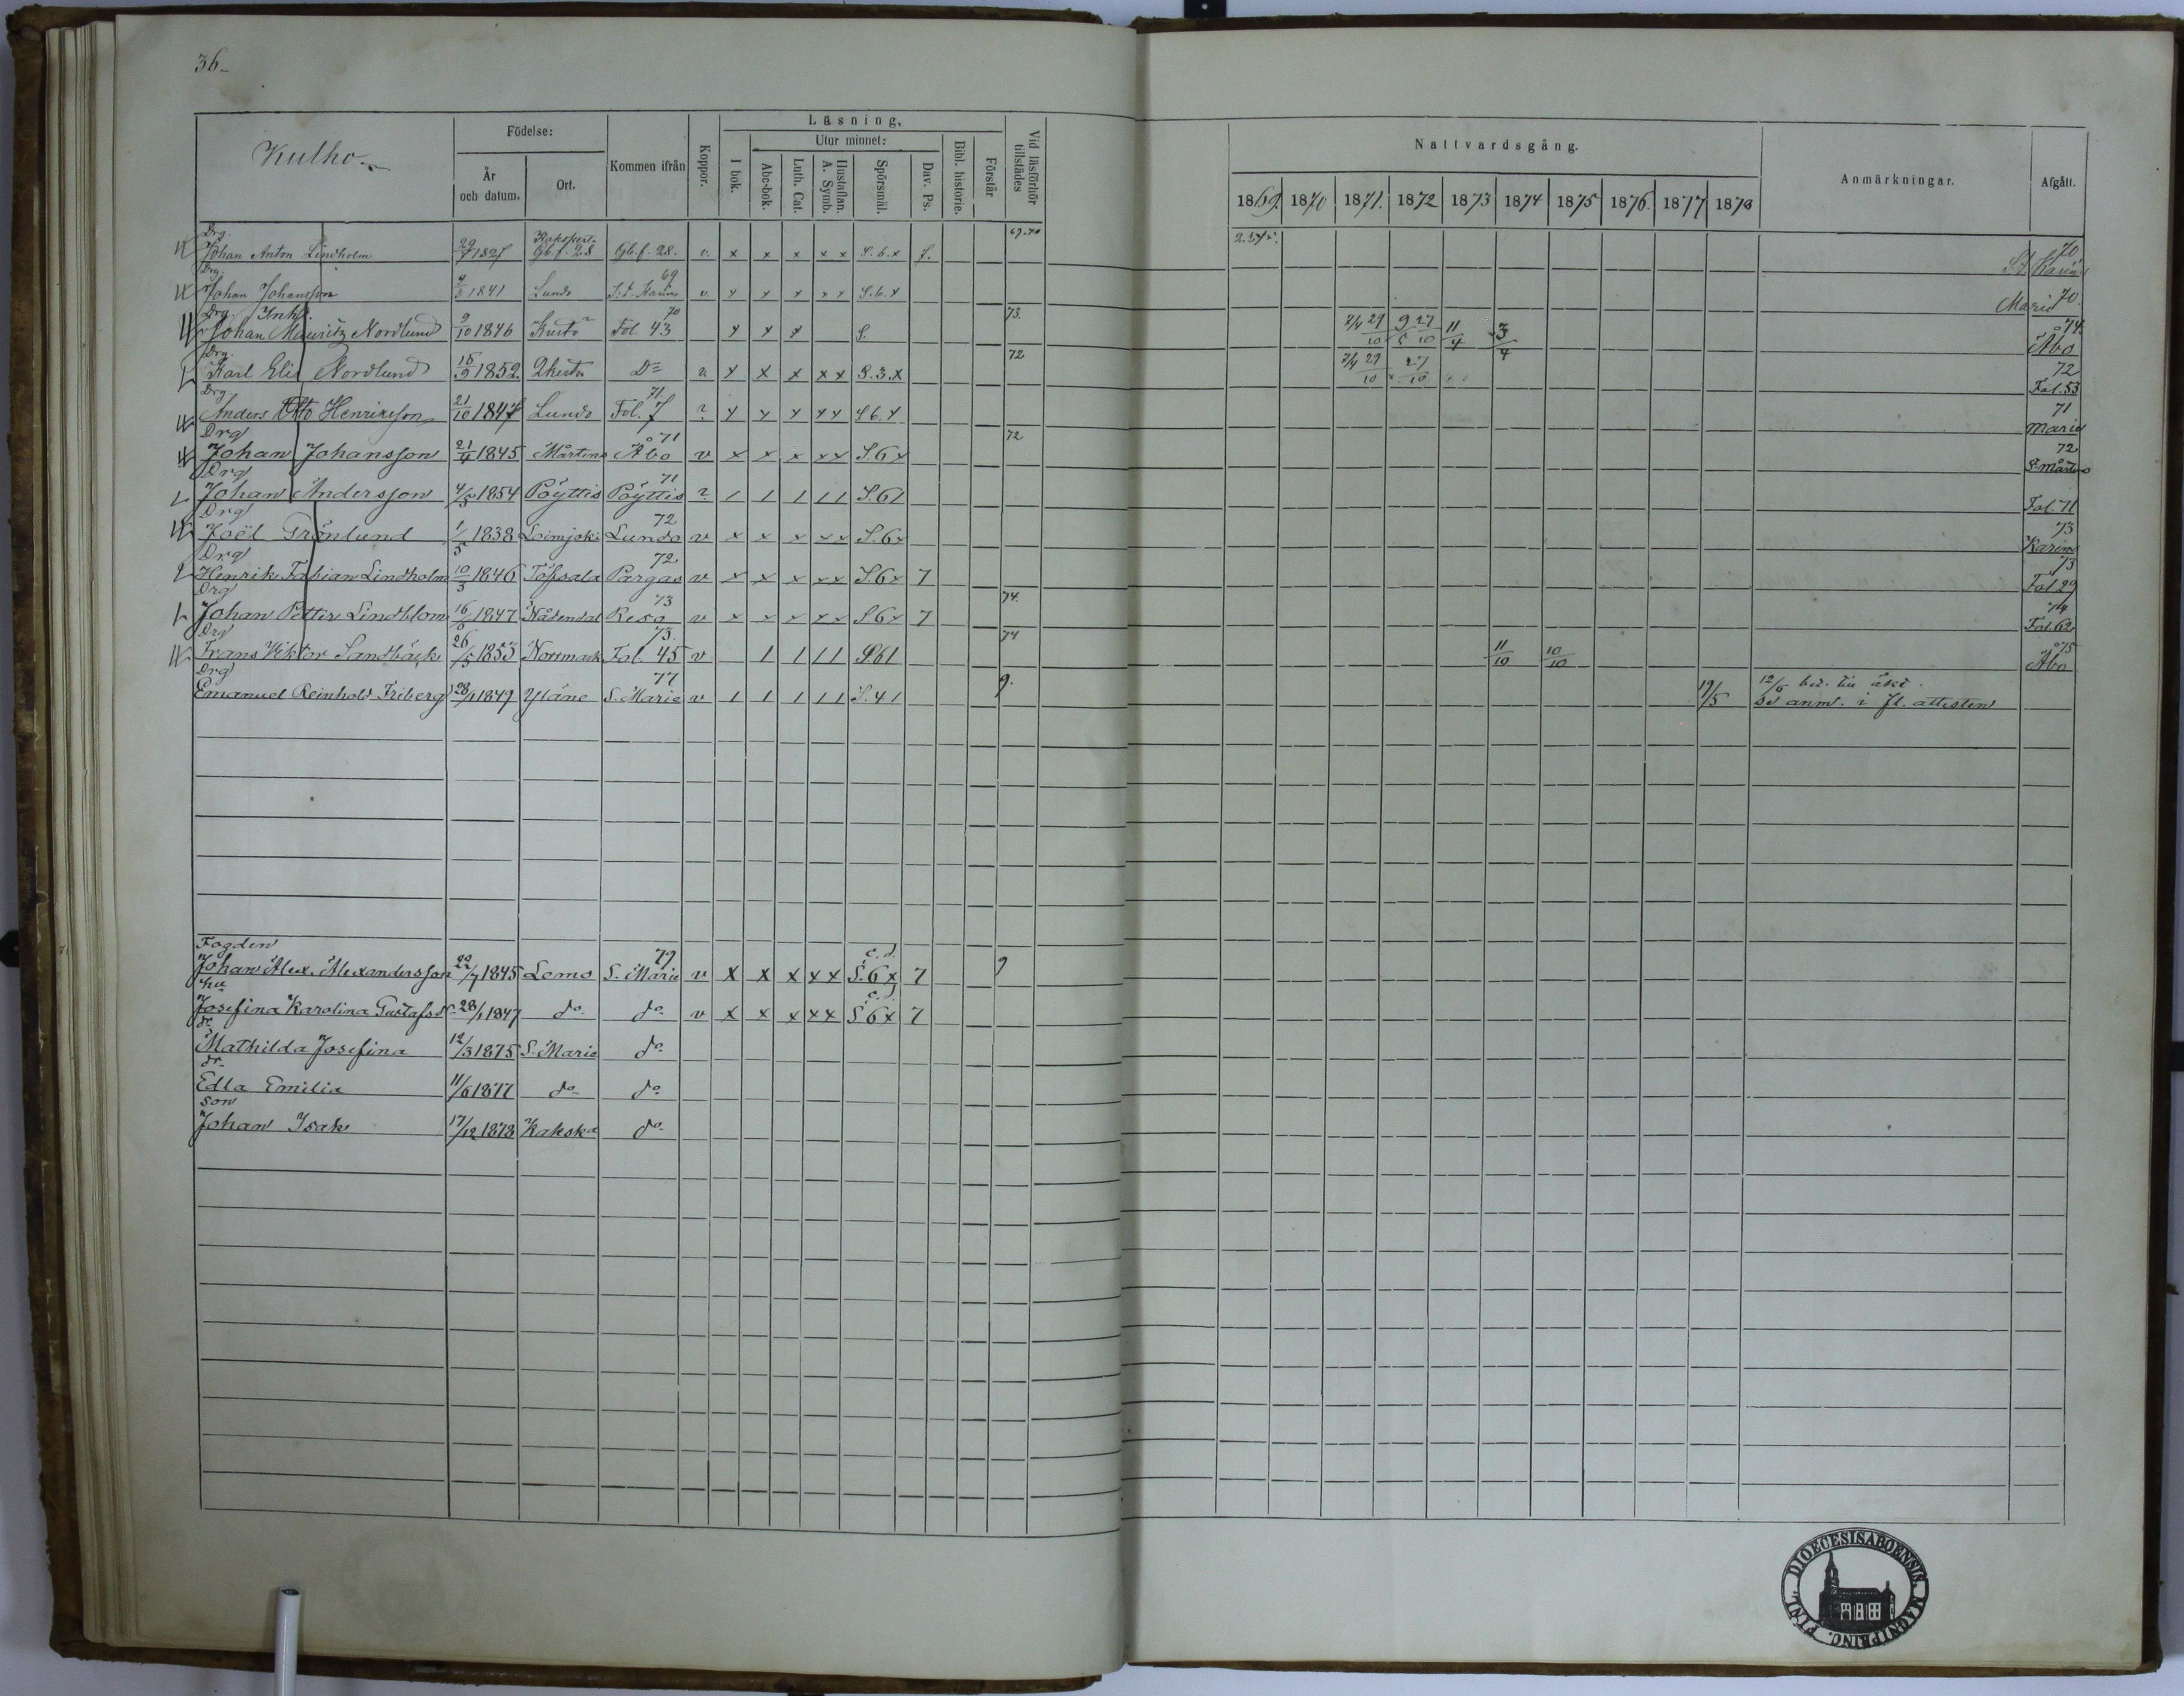 36
Kulho
Födelse:
År och datum.
Ort.
Kommen ifrån
Koppor.
Läsning.
I bok.
Utur minnet:
Abc-bok.
Luth. Cat.
Hustaflan. A. Symb.
Spörsmål.
Dav. Ps.
Bibl. historie.
Förstår
Vid läsförhör tillstädes
Nattvardsgång.
1869. 1870 1871. 1872 1873 1874 1875 1876. 1877 1878
Anmärkningar.
Afgått.
Drg. 69.70 70
Johan Anton Lindholm 29/7 1827 Gb.f. 28 Gb.f. 28. v. x x x x x S.6.x 7. St Karins
Drg. 69 70
Johan Johansson 1841 Lundo S:t Karins v x x x x x S.6.x Marie
Drg. Inh. 70 73. 74
Johan Mauritz Nordlund 9/10 1846 Kusto Fol 43 x x x S. 2/4 29/10 9/5 27/10 11/4 3/4 Åbo
Drg. 72 72
Karl Elis Nordlund 15/9 1852 D= x x x x x S.3.x 2/4 29/10 27/10 Fol. 53
Drg 71 71
Anders Otto Henriksson 21/10 1847 Lundo Fol. 7 ? x x x x x S6.x Marie
Drg 71 72 72
Johan Johansson 21/4 1845 Mårtens Åbo v x x x x x S.6x S. Mårtens
Drg 71
Johan Andersson 4/5 1854 Pöyttis Pöyttis ? 1 1 1 1 1 S.61 Fol. 71
Drg 72 73
Joël Grönlund 1/5 1838 Loimjoki Lundo v x x x x x S.6x Karins
Drg 72 73
Henrik Fabian Lindholm 10/3 1846 Töfsala Pargas v x x x x x S.6x 7 Fol 29
Drg 73 74. 74
Johan Petter Lindblom 16/6 1847 Nådendal Reso v x x x x x S6x 7 Fol. 62
Drg 73. 74 75
Frans Viktor Sandbäck 26/5 1853 Normark Fol. 45 v 1 1 1 1 S61 11/10 10/10 Åbo
Drg 77 9.
Emanuel Reinhold Friberg 28/1 1849 Yläne S. Marie v 1 1 1 1 1 S.41 19/5 12/5
se anm. i fl. attesten
Fogden 79 c.d.
Johan Alex. Alexandersson 22/7 1845 Lemo S. Marie v x x x x x S.6x 7 9
hu c.d.
Josefina Karolina Gustafsd. 28/1 1847 do do v x x x x x S6x 7
dr
Mathilda Josefina 12/3 1875 S. Marie do
dr.
Edla Emilia 11/6 1877 do do
son
Johan Isak 17/12 1878 Kakska do
FINL. DIOECESIS ABOENSIS. MAGNI PRINC.